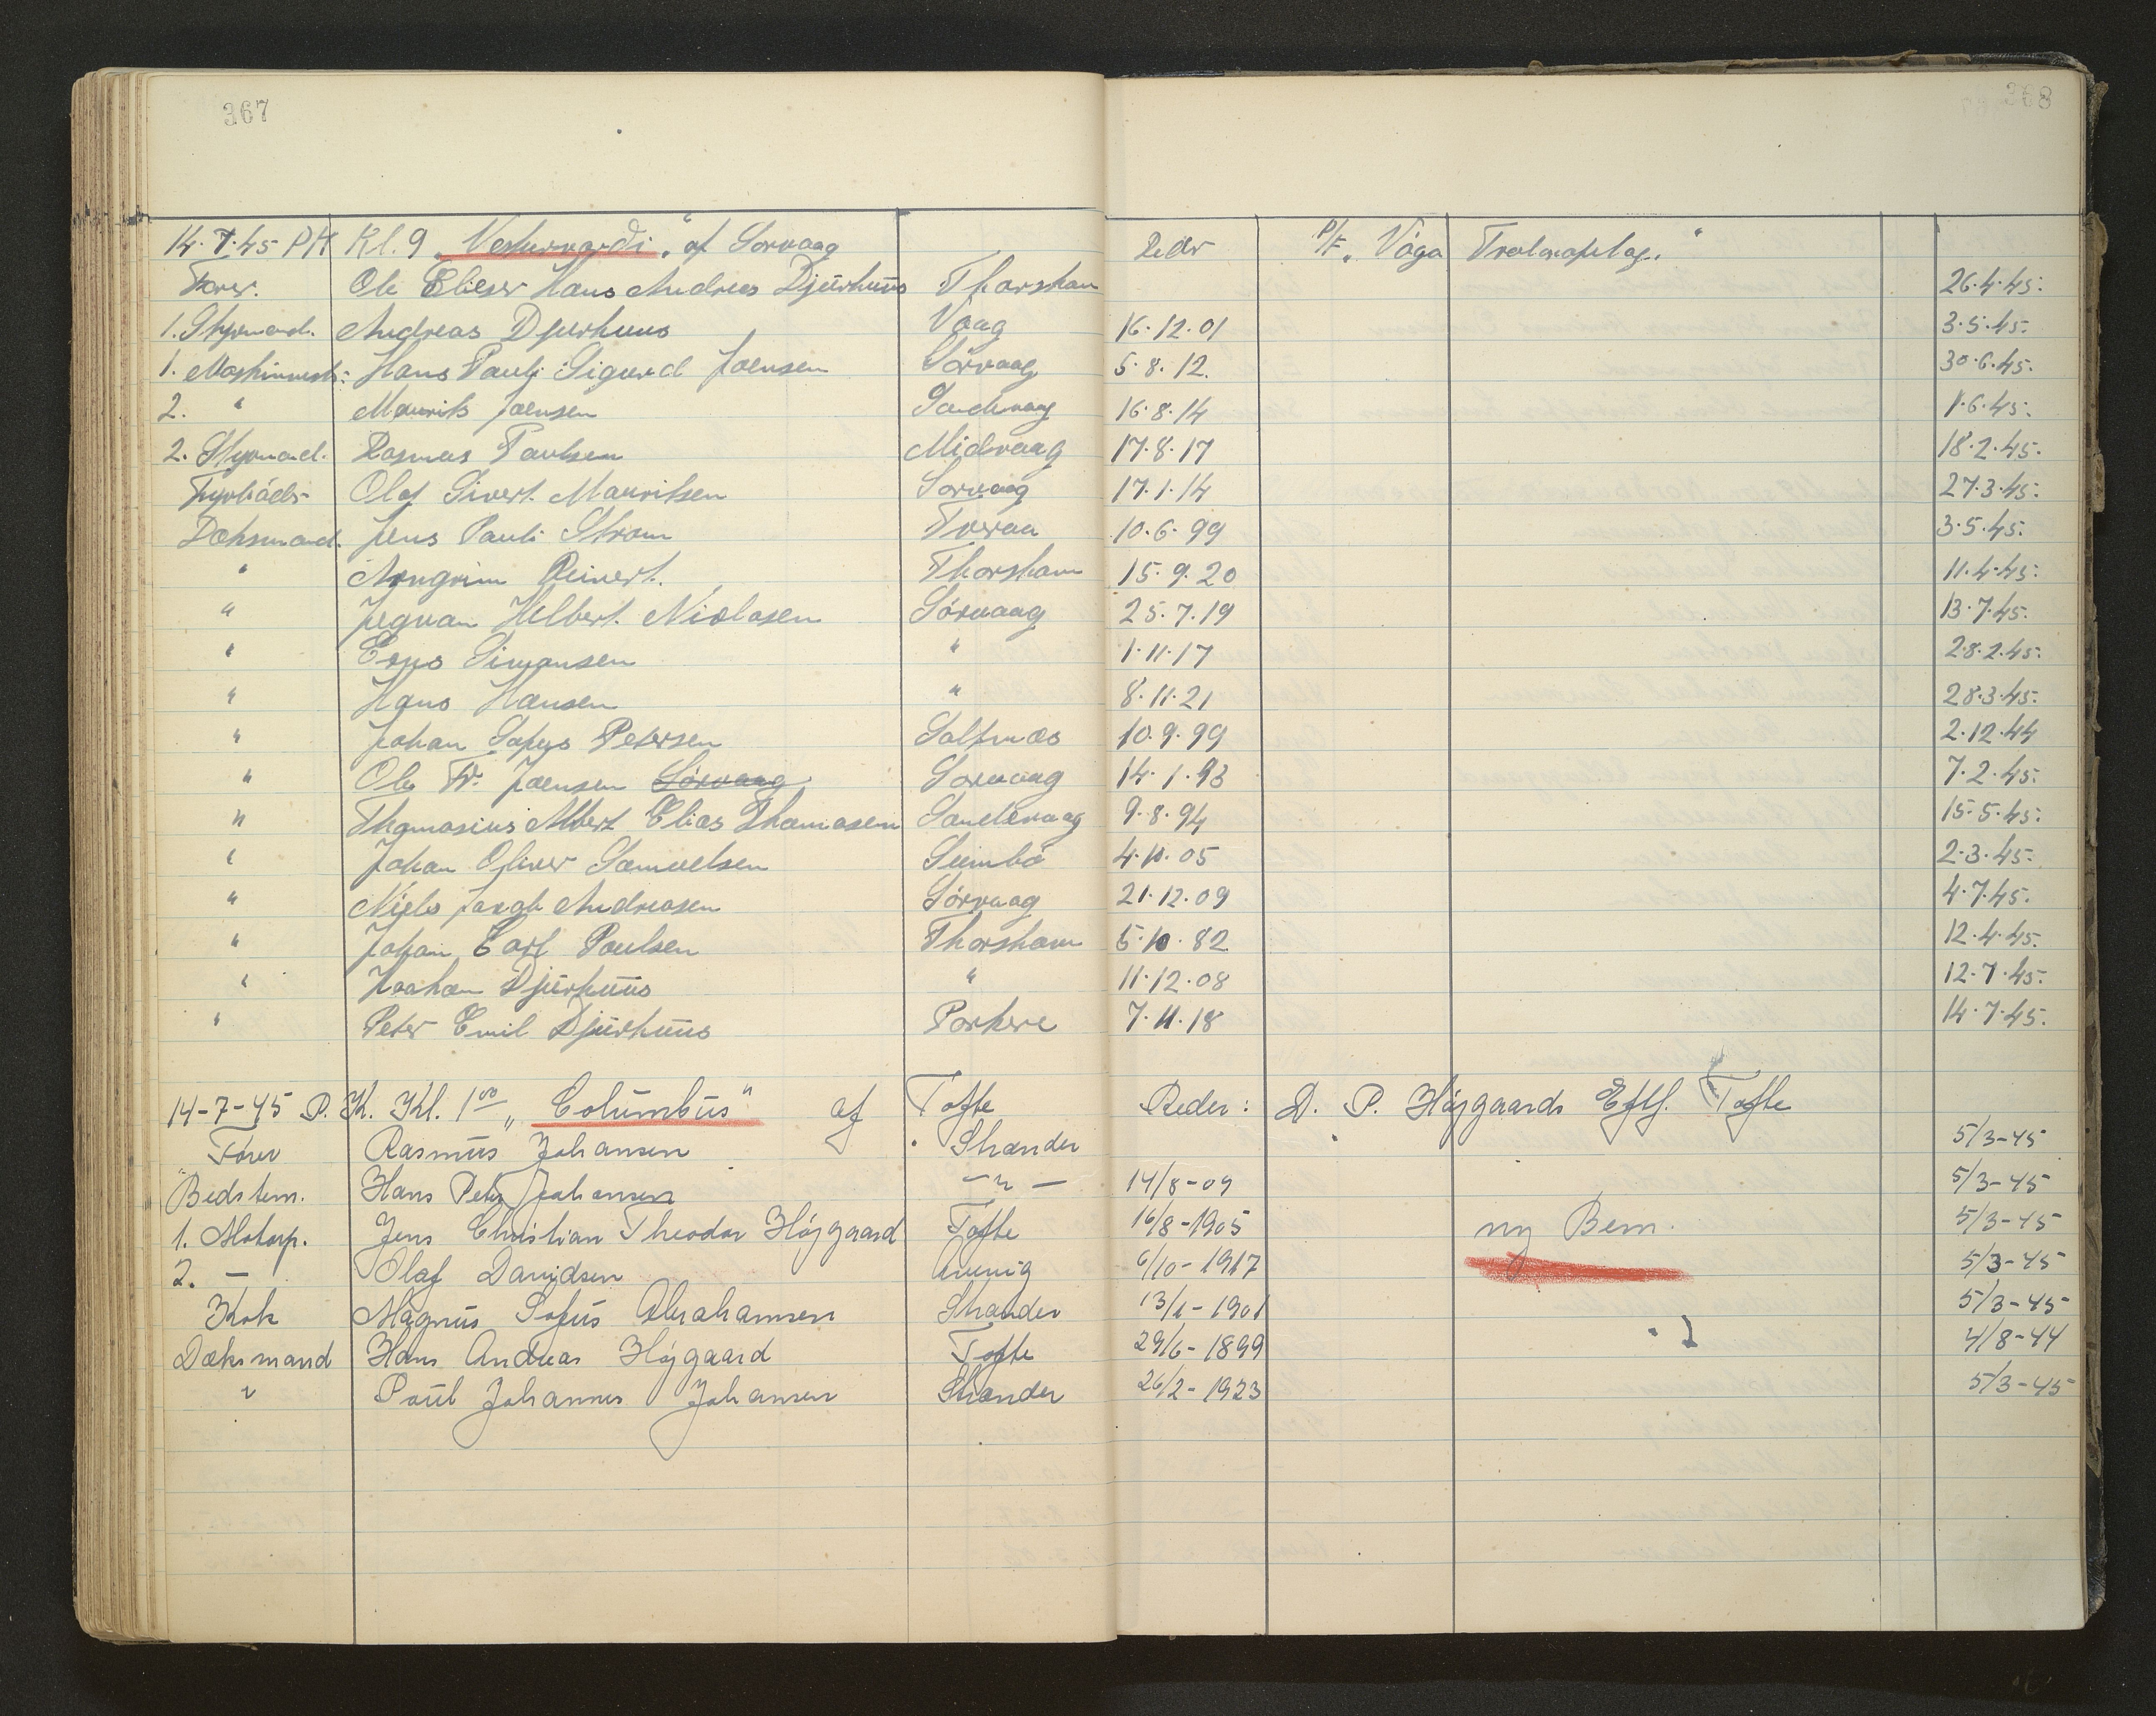 367
368
14.7.45 P.K. Kl. 9 „Vesturvardi“ af Sorvaag Reder P/F. „Vága Trolarafelag.“
Fører. Ole Elieser Hans Andreas Djurhuus Thorshavn 26.4.45.
1. Styrmand. Andreas Djurhuus Vaag 16.12.01 3.5.45.
1. Maskinmest: Hans Pauli Sigurd Joensen Sörvaag 5.8.12. 30.6.45.
2. " Maurits Joensen Sandevaag 16.8.14 1.6.45.
2. Styrmand. Rasmus Poulsen Midvaag 17.8.17 18.2.45.
Fyrböder Olaf Sivert. Mauritsen Sorvaag 17.1.14 27.3.45.
Dæksmand. Jens Pauli Strøm Tveraa 10.6.99 3.5.45.
" Arngrim Reinert. Thorshavn 15.9.20 11.4.45.
" Jegvan Hilbert. Niclasen Sörvaag 25.7.19 13.7.45.
" Simonsen " 1.11.17 28.2.45.
" Hans Hansen " 8.11.21 28.3.45.
" Johan Sofus Petersen Saltnæs 10.9.99 2.12.44
" Ole W. Joensen Sörvaag Sorvaag 14.1.93 7.2.45.
" Thomasius Albert Elias Thomasen Sandevaag 9.8.94 15.5.45.
" Johan Oliver Samuelsen Sumbö 4.10.05 2.3.45.
" Niels Jacob Andreasen Sörvaag 21.12.09 4.7.45.
" Johan Carl Poulsen Thorshavn 5.10.82 12.4.45.
" Joahan Djurhuus " 11.12.08 12.7.45.
" Peter Emil Djurhuus Porkere 7.11.18 14.7.45.
14-7-45 P. K. Kl. 1 00 „Columbus“ af Tofte Reder: D. P. Højgaards Eftf. Tofte
Fører Rasmus Johansen Skander 5/3-45
Bedstem. Hans Peter Johansen -"- 14/8-09 5/3-45
1. Motorp. Jens Christian Theodor Højgaard Tofte 16/8-1905 ny Bem. 5/3-45
2. - Olaf Davidsen 6/10-1917 5/3-45
Kok Magnus Sofus Abrahamsen Skander 13/1-1901 5/3-45
Dæksmand Hans Andreas Højgaard Tofte 29/6-1899 4/8-44
" Poul Johannes Johansen Skander 26/2-1923 5/3-45